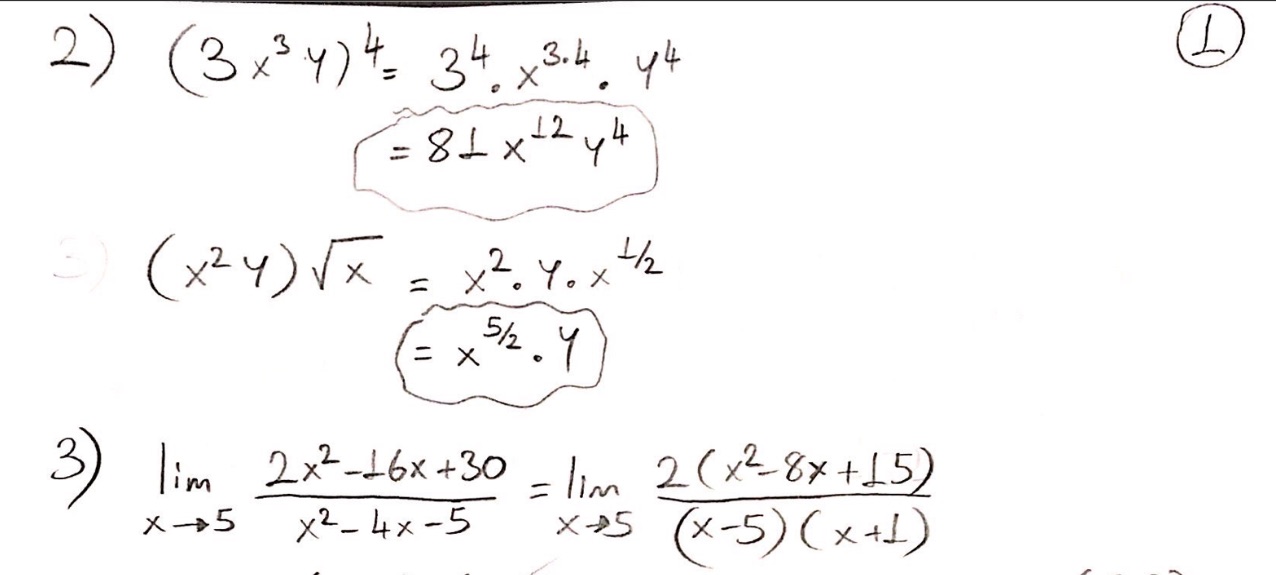 ①
2) (3x³y)⁴ = 3⁴ . x³·⁴ . y⁴
= 81x¹²y⁴
3) (x²y)√x = x² . y . x^1/2
= x^5/2 . y
3) lim x→5 (2x²-16x+30)/(x²-4x-5) = lim x→5 2(x²-8x+15)/((x-5)(x+1))